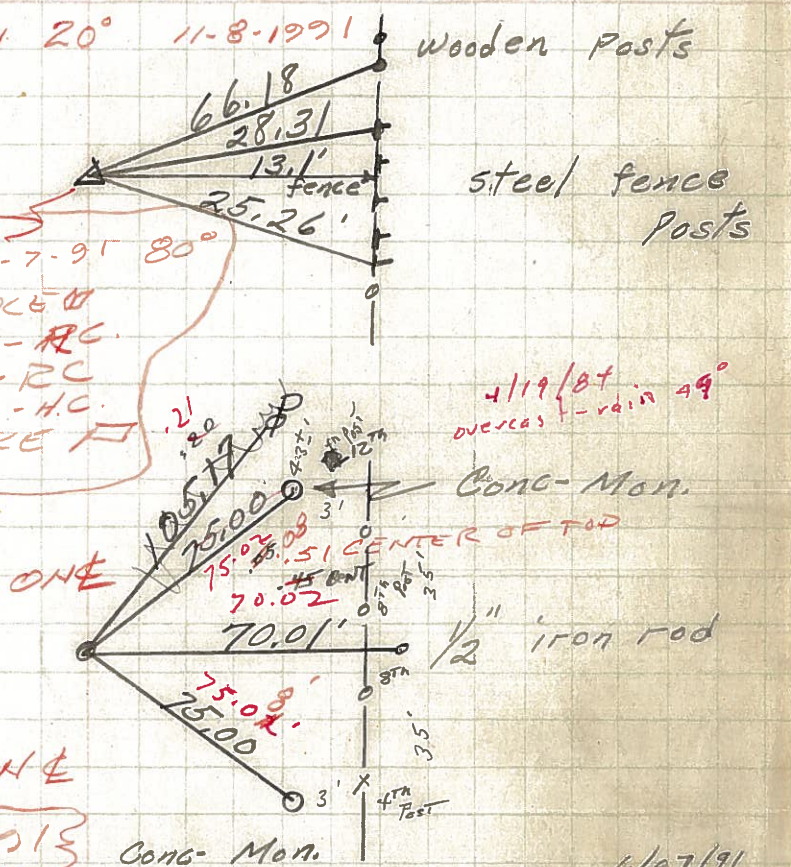 20° 11-8-1991
wooden Posts
66.18
28.31
13.1'
fence
25.26'
steel fence
Posts
-7-91 80°
- RC
- H.C.
4/19/84
overcast - rain 49°
.21
.20
105.17
43±'
12th
Post
Conc- Mon.
3'
75.00'
75.02
.08
.51 CENTER OF TOP
ONE
70.02
8th
Post
35'
70.01'
1/2" iron rod
8th
75.02'
75.00
35'
3'
4th
Post
Conc- Mon.